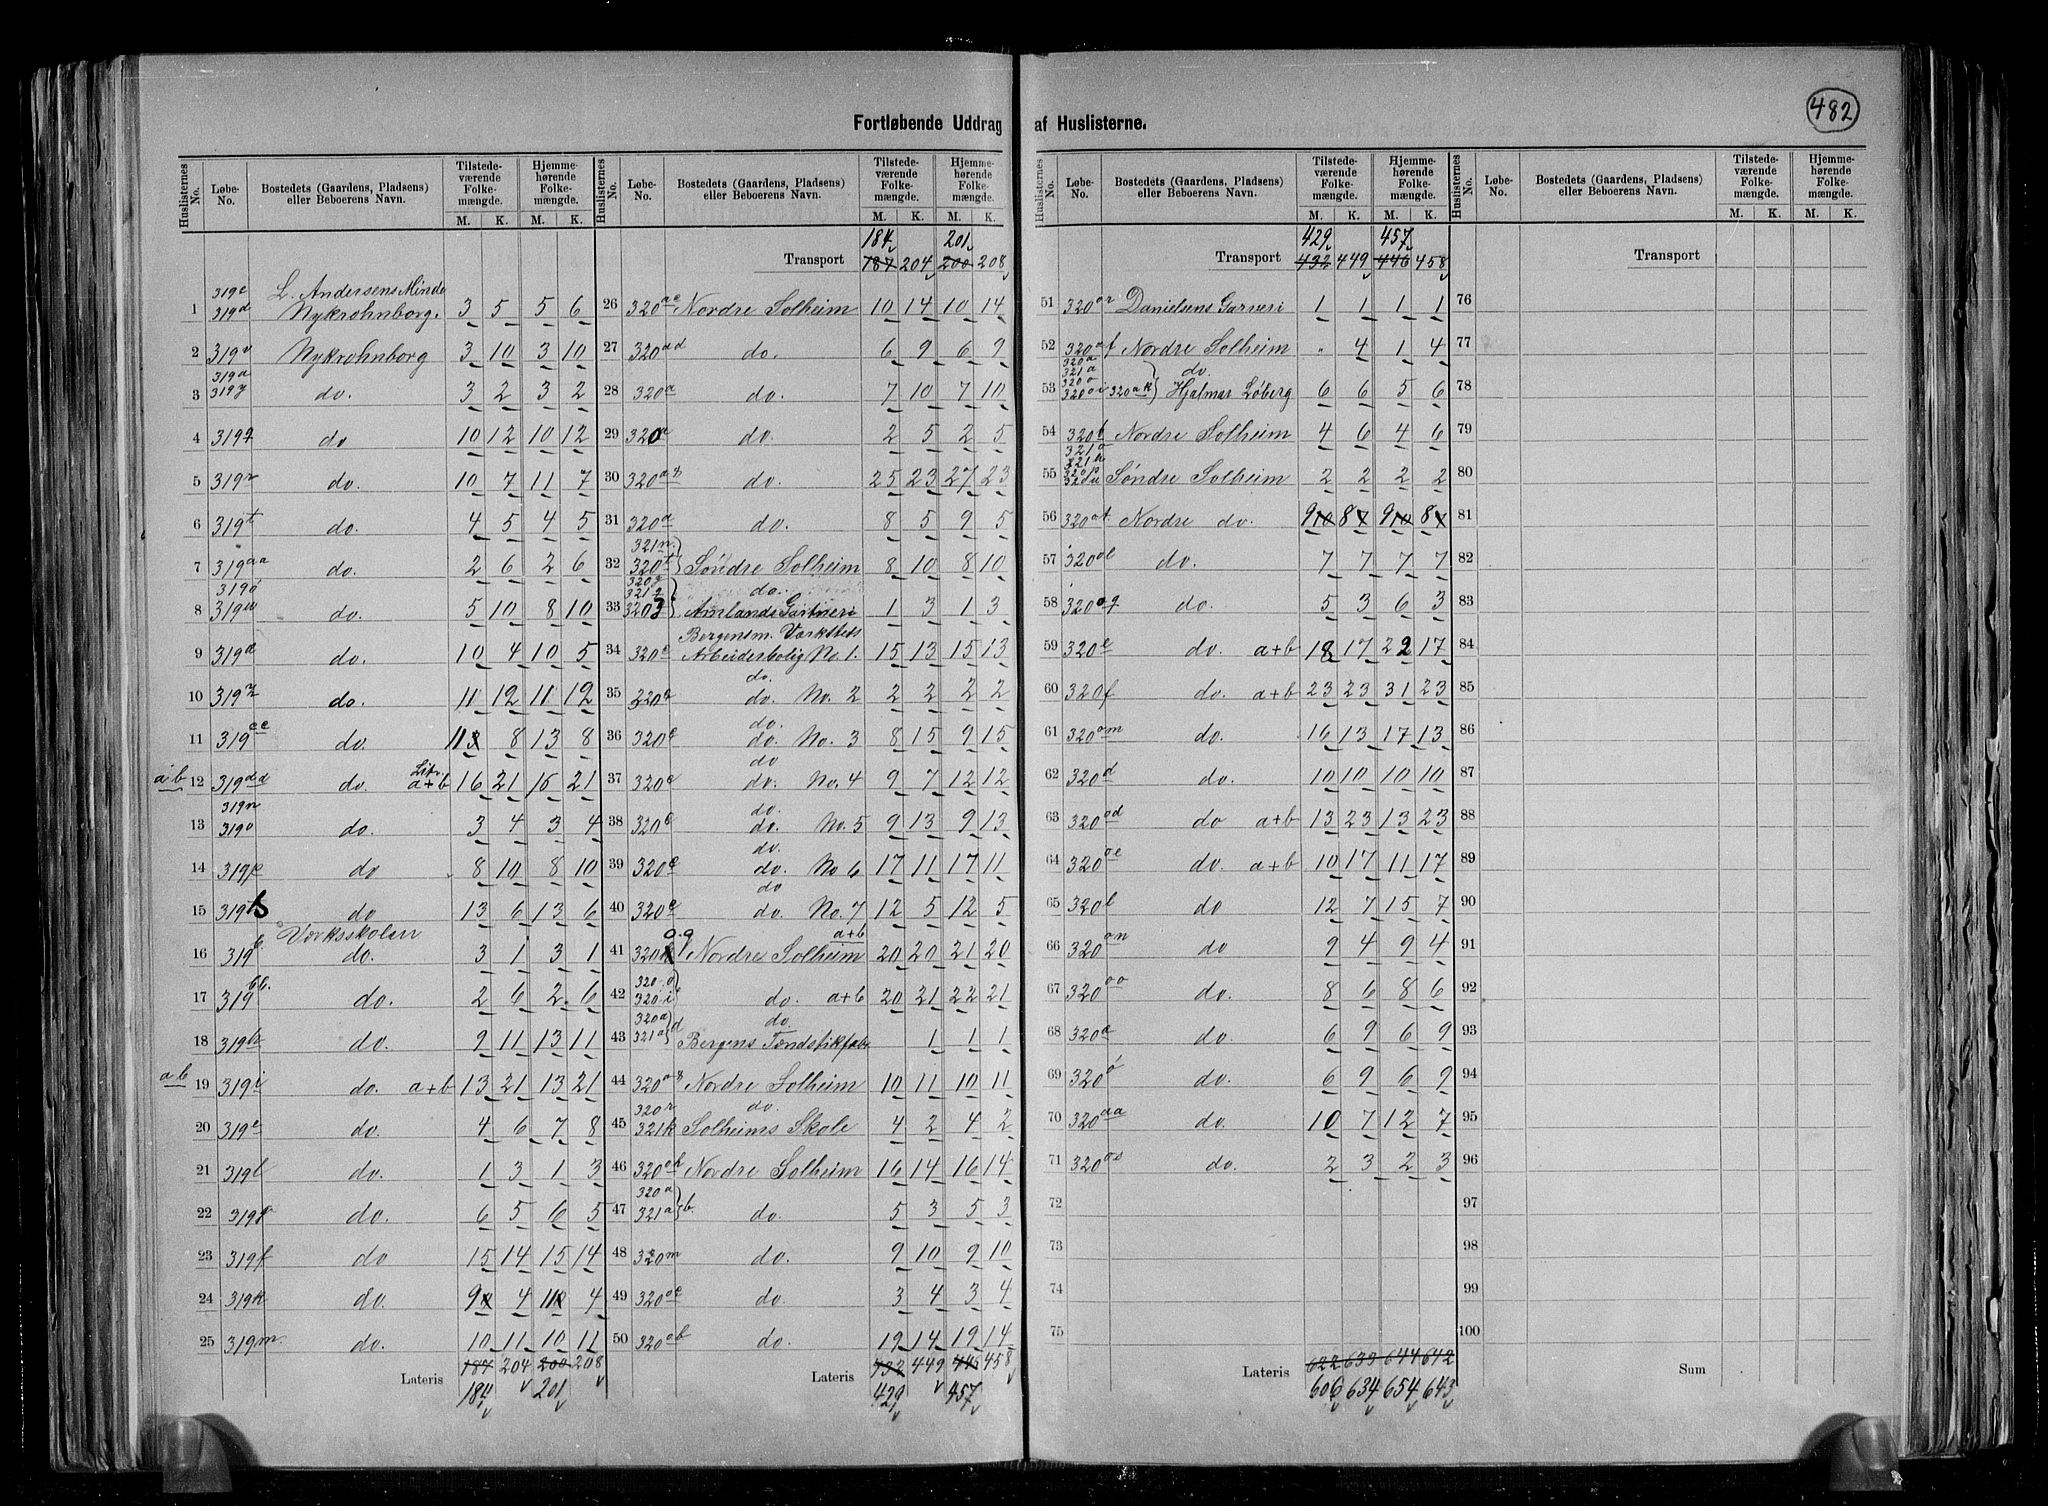 482
Fortløbende Uddrag af Huslisterne.
Huslisternes No. Løbe-No. Bostedets (Gaardens, Pladsens) eller Beboerens Navn. Tilstedeværende Folkemængde. M. K. Hjemmehørende Folkemængde. M. K.
1 319c 319d L. Andersens Minde Nykrohnborg. 3 5 5 6
2 319v Nykrohnborg 3 10 3 10
3 319a 319y do. 3 2 3 2
4 319 do 10 12 10 12
5 319r do. 10 7 11 7
6 319t do. 4 5 4 5
7 319aa do. 2 6 2 6
8 319ó 319w do. 5 10 8 10
9 319d do. 10 4 10 5
10 319z do. 11 12 11 12
11 319ee do. 11 8 13 8
a.b 12 319dd do. Litr. a+b 16 21 16 21
13 319n 319o do. 3 4 3 4
14 319p do 8 10 8 10
15 319s do 13 6 13 6
16 319b. Værksskolen do. 3 1 3 1
17 319bb. do. 2 6 2 6
18 319h do. 9 11 13 11
a.b 19 319i do. a+b 13 21 13 21
20 319e do. 4 6 7 8
21 319l do. 1 3 1 3
22 319 do. 6 5 6 5
23 319f do 15 14 15 14
24 319k do. 9 4 11 4
25 319m. do. 10 11 10 11
Lateris 187 204 200 208
184 201
184 201
Transport 187 204 200 208
26 320ae Nordre Solheim 10 14 10 14
27 320ad do. 6 9 6 9
28 320a do. 7 10 7 10
29 320a do. 2 5 2 5
30 320 do. 25 23 27 23
31 320a do. 8 5 9 5
32 321n 320t Søndre Solheim 8 10 8 10
33 320g 321g 3203 do. Amlands Gartneri 1 3 1 3
34 320e Bergensm. Værksteds Arbeiderbolig No. 1. 15 13 15 13
35 320e do. do. No. 2 2 2 2 2
36 320e do. do. No. 3 8 15 9 15
37 320e do do. No. 4 9 7 12 12
38 320e do. do. No. 5 9 13 9 13
39 320e do. do. No 6 17 11 17 11
40 320e do do. No. 7 12 5 12 5
41 320 o.g Nordre Solheim a+b 20 20 21 20
42 320.o 320.i do. a+b 20 21 22 21
43 320a 321a d do Bergens Tændstikfab. 1 1 1
44 320 Nordre Solheim 10 11 10 11
45 320r 321k do. Solheims Skole 4 2 4 2
46 320ok Nordre Solheim 16 14 16 14
47 320a 321a b. do. 5 3 5 3
48 320m do. 9 10 9 10
49 320oc do. 3 4 3 4
50 320ob do. 19 14 19 14
Lateris 432 449 446 458
429 457
429 457
Transport 432 449 446 458
51 320or Danielsens Garveri 1 1 1 1
52 320af Nordre Solheim " 4 1 4
53 320a 321a 320o 320oi 320ak do. Hjalmar Løberg 6 6 5 6
54 320b Nordre Solheim 4 6 4 6
55 321o Søndre Solheim 2 2 2 2
56 320at Nordre do. 9 10 8 7 9 10 8 7
57 320ol do. 7 7 7 7
58 320og do. 5 3 6 3
59 320e do. a+b 18 17 22 17
60 320f do. a+b 23 23 31 23
61 320om do. 16 13 17 13
62 320d do. 10 10 10 10
63 320od do a+b 13 23 13 23
64 320oe do. a+b 10 17 11 17
65 320l do 12 7 15 7
66 320on do 9 4 9 4
67 320oo do. 8 6 8 6
68 320a do. 6 9 6 9
69 320ó do. 6 9 6 9
70 320aa do. 10 7 12 7
71 320os do. 2 3 2 3
72
73
74
75
Lateris 622 633 644 642
606 634 654 643
Transport
76
77
78
79
80
81
82
83
84
85
86
87
88
89
90
91
92
93
94
95
96
97
98
99
100
Sum